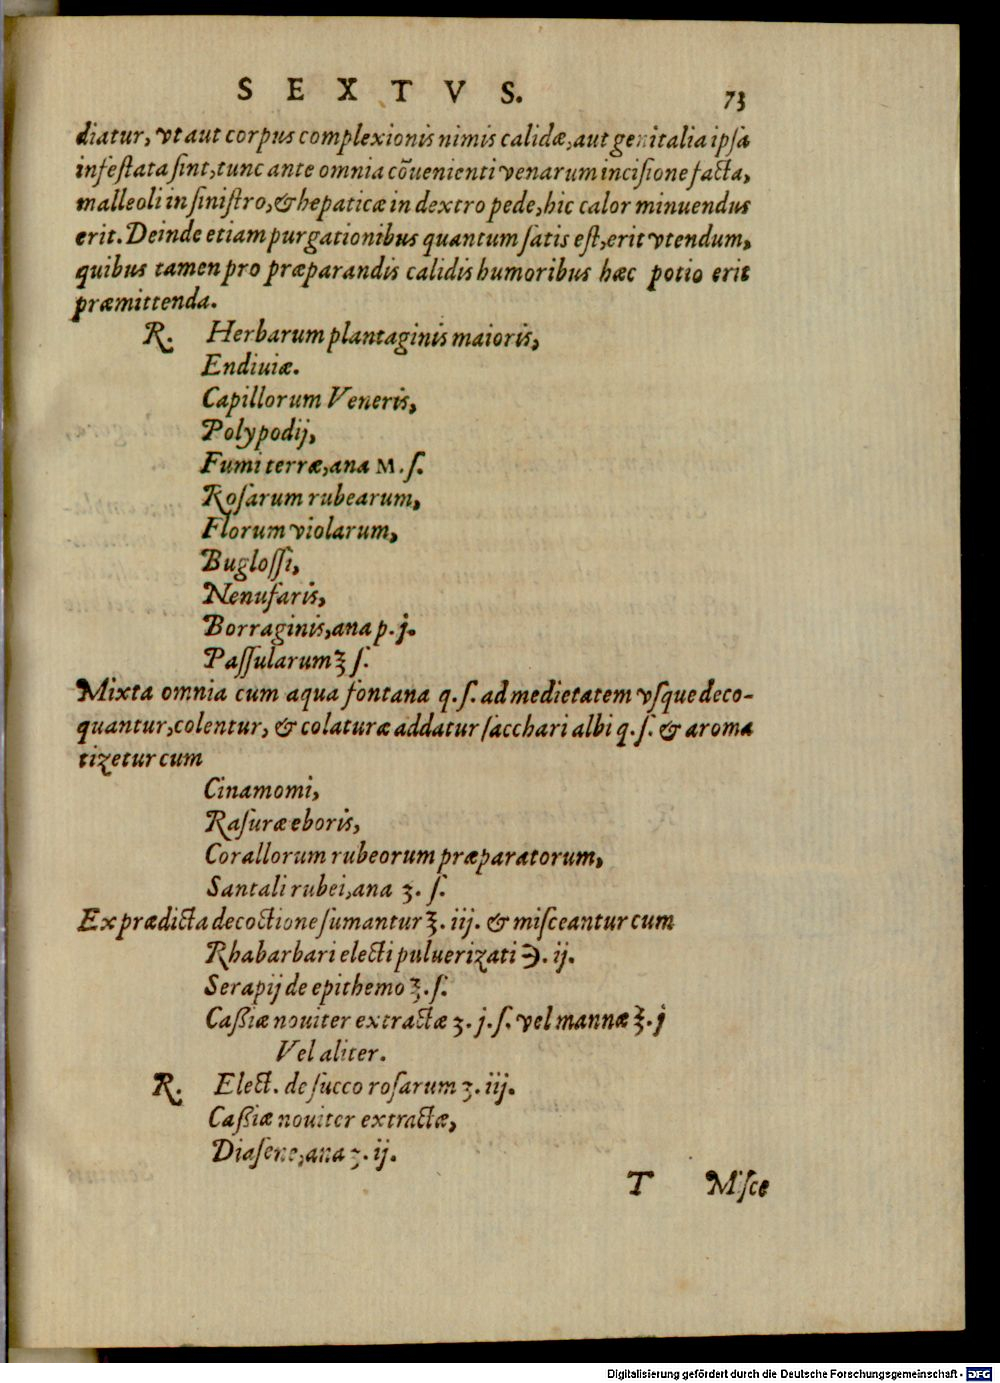 SEXTVS. 73
diatur, vt aut corpus complexionis nimis calidæ, aut genitalia ipsa
infestata sint, tunc ante omnia cõuenienti venarum incisione facta,
malleoli in sinistro, & hepaticæ in dextro pede, hic calor minuendus
erit. Deinde etiam purgationibus quantum satis est, erit vtendum,
quibus tamen pro præparandis calidis humoribus hæc potio erit
præmittenda.
R. Herbarum plantaginis maioris,
Endiuiæ.
Capillorum Veneris,
Polypodij,
Fumi terræ, ana M. ſ.
Rosarum rubearum,
Florum violarum,
Buglossi,
Nenufaris,
Borraginis, ana p. j.
Passularum ℥ ſ.
Mixta omnia cum aqua fontana q. ſ. ad medietatem vsque deco-
quantur, colentur, & colaturæ addatur sacchari albi q. ſ. & aroma
tizetur cum
Cinamomi,
Rasuræ eboris,
Corallorum rubeorum præparatorum,
Santali rubei, ana ʒ. ſ.
Ex prædicta decoctione sumantur ℥. iij. & misceantur cum
Rhabarbari electi puluerizati ℈. ij.
Serapij de epithemo ℥. ſ.
Caßiæ nouiter extractæ ʒ. j. ſ. vel mannæ ℥. j
Vel aliter.
R. Elect. de succo rosarum ʒ. iij.
Caßiæ nouiter extractæ,
Diasene, ana ʒ. ij.
T Misce
Digitalisierung gefördert durch die Deutsche Forschungsgemeinschaft - DFG